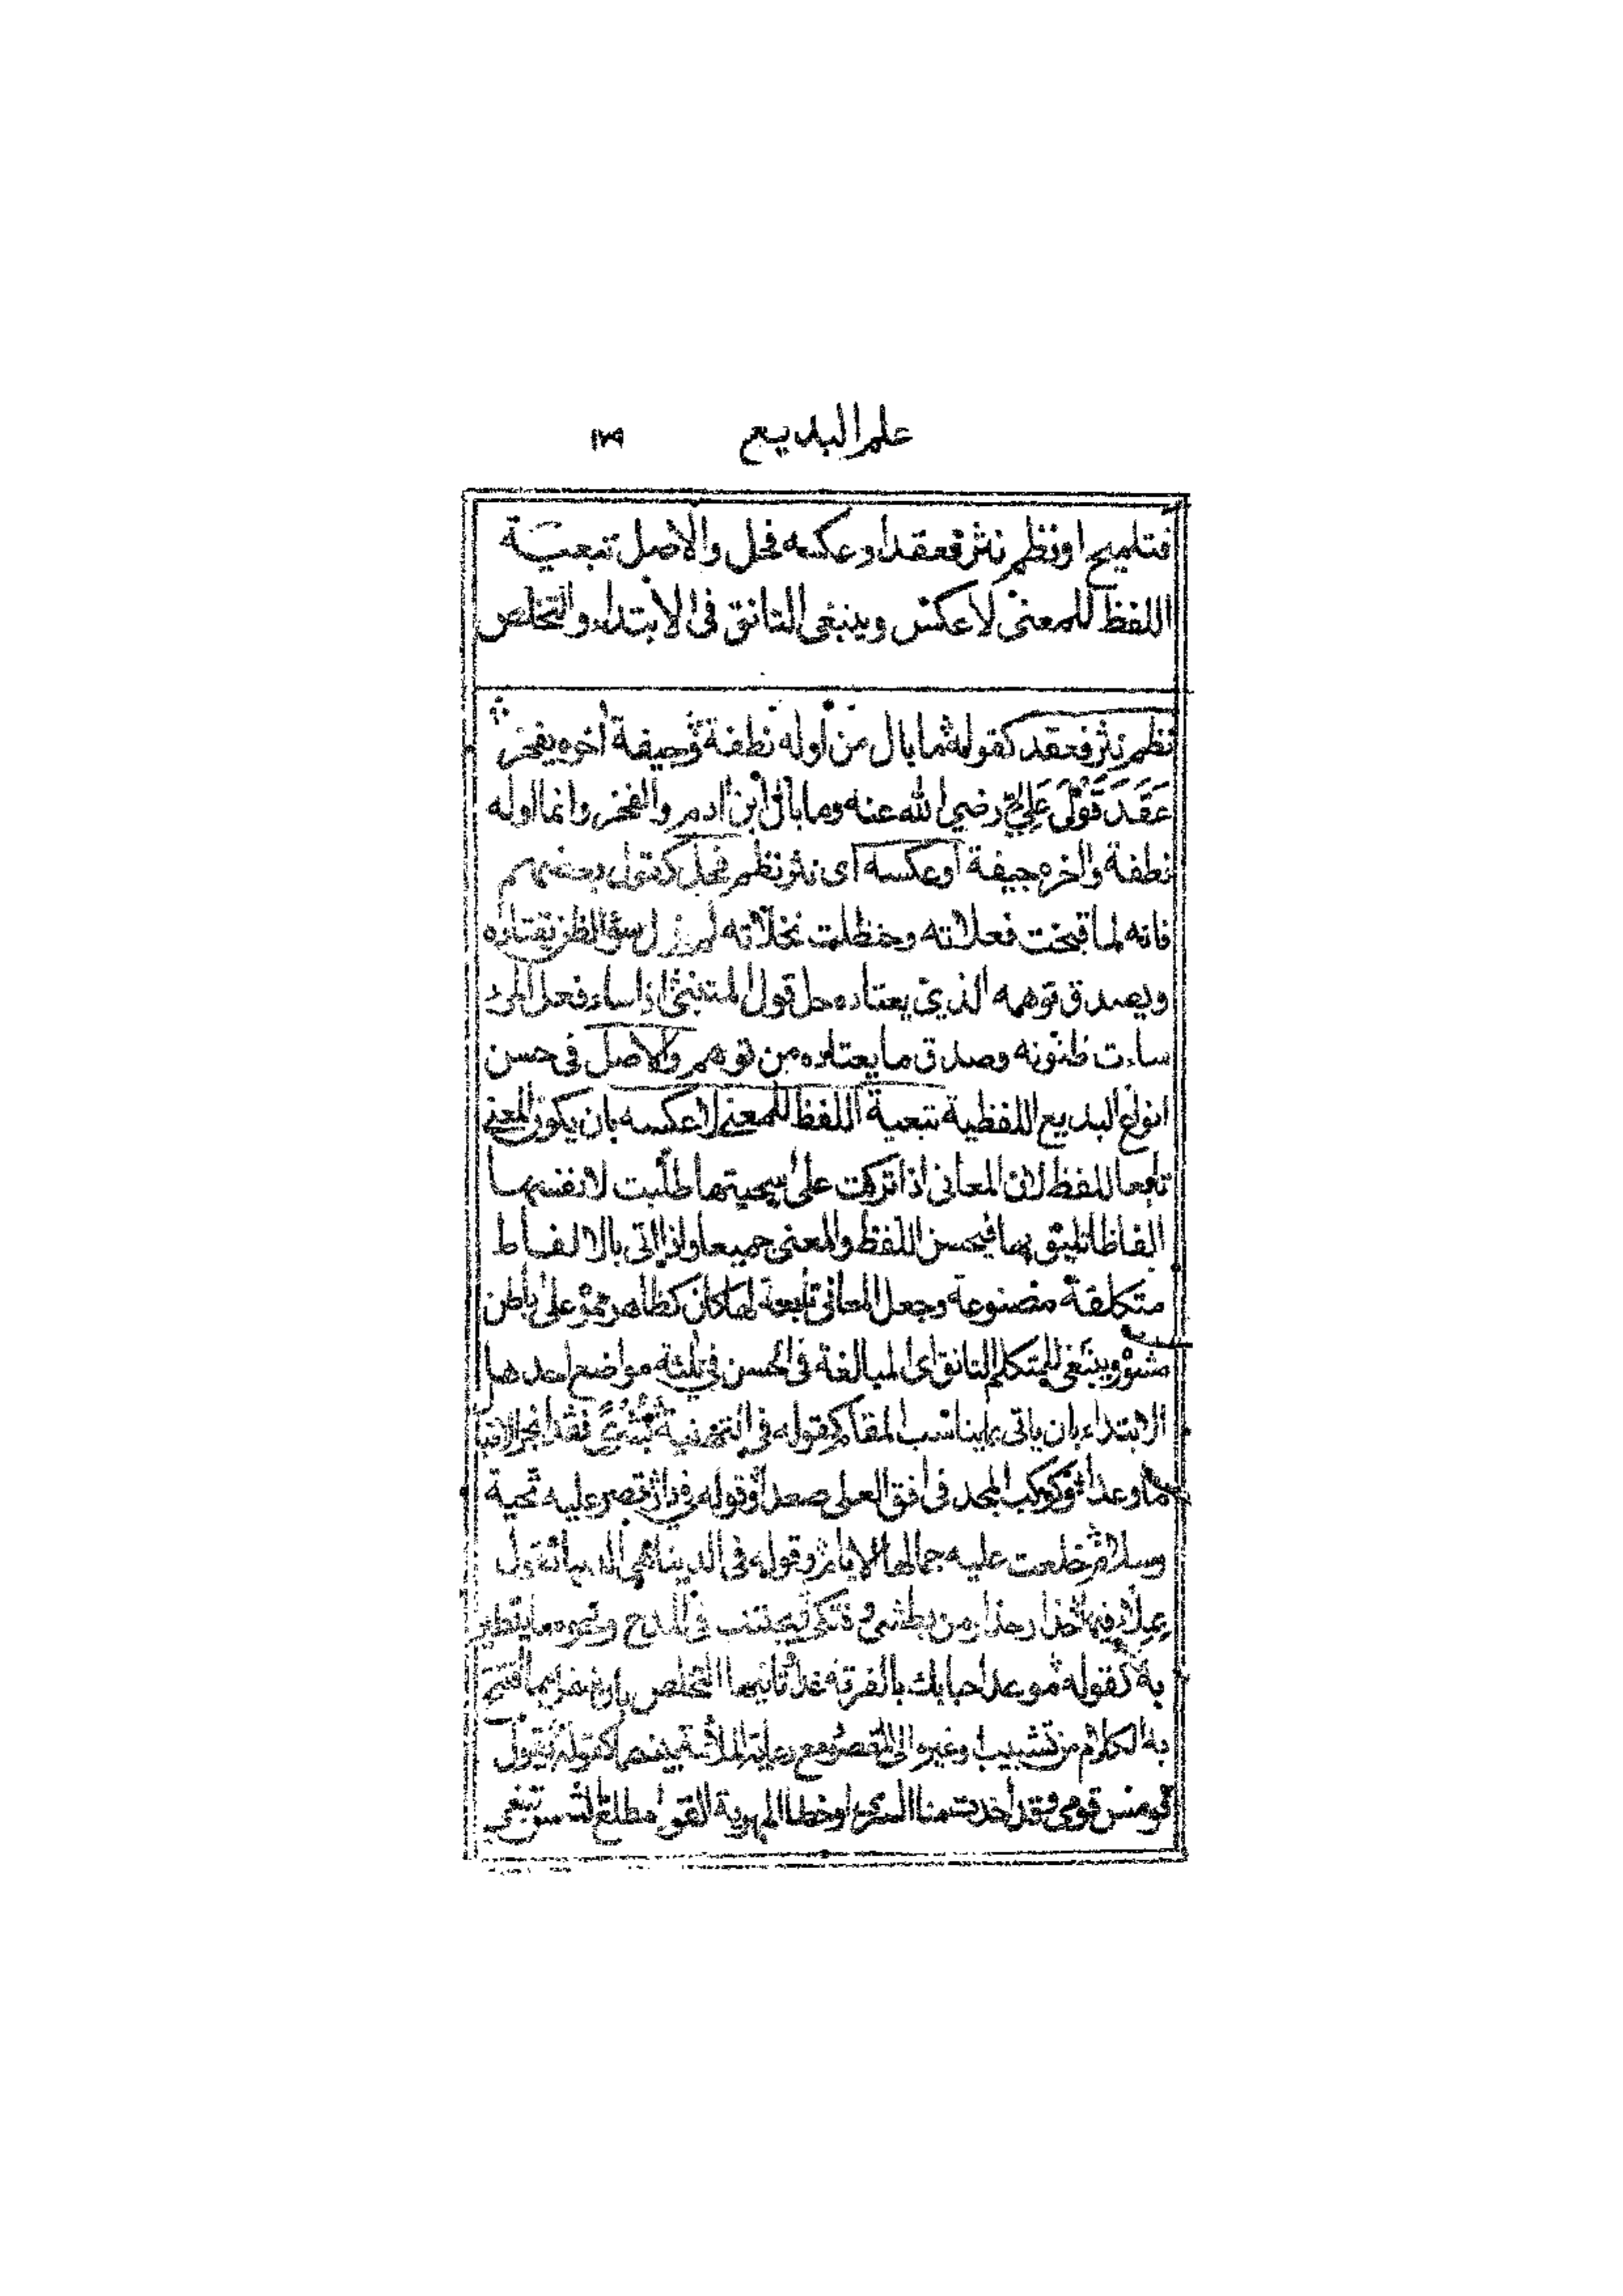 علم البديع ١٧٩
فتلميح او نظم نثر فعقد او عكسه فحل والاصل تبعية
اللفظ للمعنى لا عكس وينبغى التانق فى الابتداء والتخلص
نظم نثر فعقد كقوله ما بال من اوله نطفة وجيفة اخره يفخر
عَقَدَ قَوْلَ عَلِيٍّ رضي الله عنه وما بال ابن ادم والفخر وانما اوله
نطفة واخره جيفة او عكسه اى نثر نظم فحل كقول بعضهم
فانه لما قبحت فعلاته وحنظلت نخلاته لم يزل سوء الظن يقتاده
ويصدق توهمه الذي يعتاده حل قول المتنبى اذا ساء فعل المرء
ساءت ظنونه وصدق ما يعتاده من توهم والاصل فى حسن
انواع البديع اللفظية تبعية اللفظ للمعنى لا عكسه بان يكون المعنى
تابعا للفظ لان المعانى اذا تركت على سجيتها طلبت لانفسها
الفاظا تليق بها فيحسن اللفظ والمعنى جميعا واذا اتى بالالفاظ
متكلفة مصنوعة وجعل المعانى تابعة لها كان كظاهر مموه على باطن
مشوه وينبغى للمتكلم التانق اى المبالغة فى الحسن فى ثلثة مواضع احدها
الابتداء بان ياتى بما يناسب المقام كقوله فى التهنية بشرى فقد انجز الاقبال
ما وعدا وكوكب المجد فى افق العلى صعدا وقوله فى دار قصر عليه تحية
وسلام خلعت عليه جمالها الايام وقوله فى الدنيا هى الدنيا تقول
بملء فيها حذار حذار من بطشى وفتكى يجتنب فى المدح ونحوه ما يتطير
به كقوله موعد احبابك بالفرقة غد ثانيها التخلص بان ينفر مما افتتح
به الكلام من تشبيب وغيره الى المقصود مع رعاية الملائمة بينهما كقوله يقول
قومس قومى وقد اخذت منا السرى وخطا المهرية القود امطلع الشمس تبغى